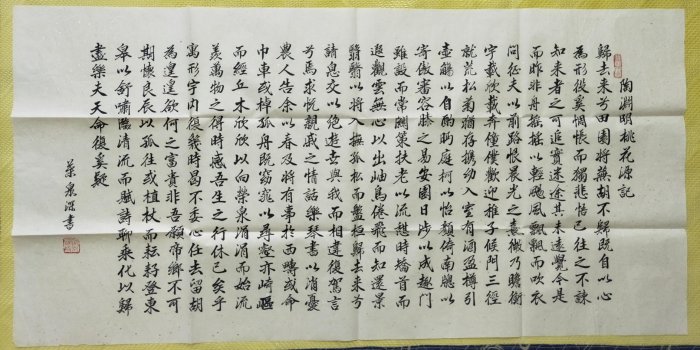 陶淵明桃花源記
歸去来兮田園將蕪胡不歸既自以心
為形役奚惆悵而獨悲悟已往之不諫
知来者之可追實迷途其未遠覺今是
而昨非舟摇摇以輕颺風飄飄而吹衣
問征夫以前路恨晨光之熹微乃瞻衡
宇載欣載奔僮僕歡迎稚子候門三徑
就荒松菊猶存攜幼入室有酒盈樽引
壺觴以自酌眄庭柯以怡顏倚南牕以
寄傲審容膝之易安園日涉以成趣門
雖設而常關策扶老以流憩時矯首而
遐觀雲無心以出岫鳥倦飛而知還景
翳翳以將入撫孤松而盤桓歸去来兮
請息交以絕遊世與我而相違復駕言
兮焉求悅親戚之情話樂琴書以消憂
農人告余以春及將有事於西疇或命
巾車或棹孤舟既窈窕以尋壑亦崎嶇
而經丘木欣欣以向榮泉涓涓而始流
羨萬物之得時感吾生之行休已矣乎
寓形宇內復幾時曷不委心任去留胡
為遑遑欲何之富貴非吾願帝鄉不可
期懷良辰以孤往或植杖而耘耔登東
皋以舒嘯臨清流而賦詩聊乘化以歸
盡樂夫天命復奚疑
泉書